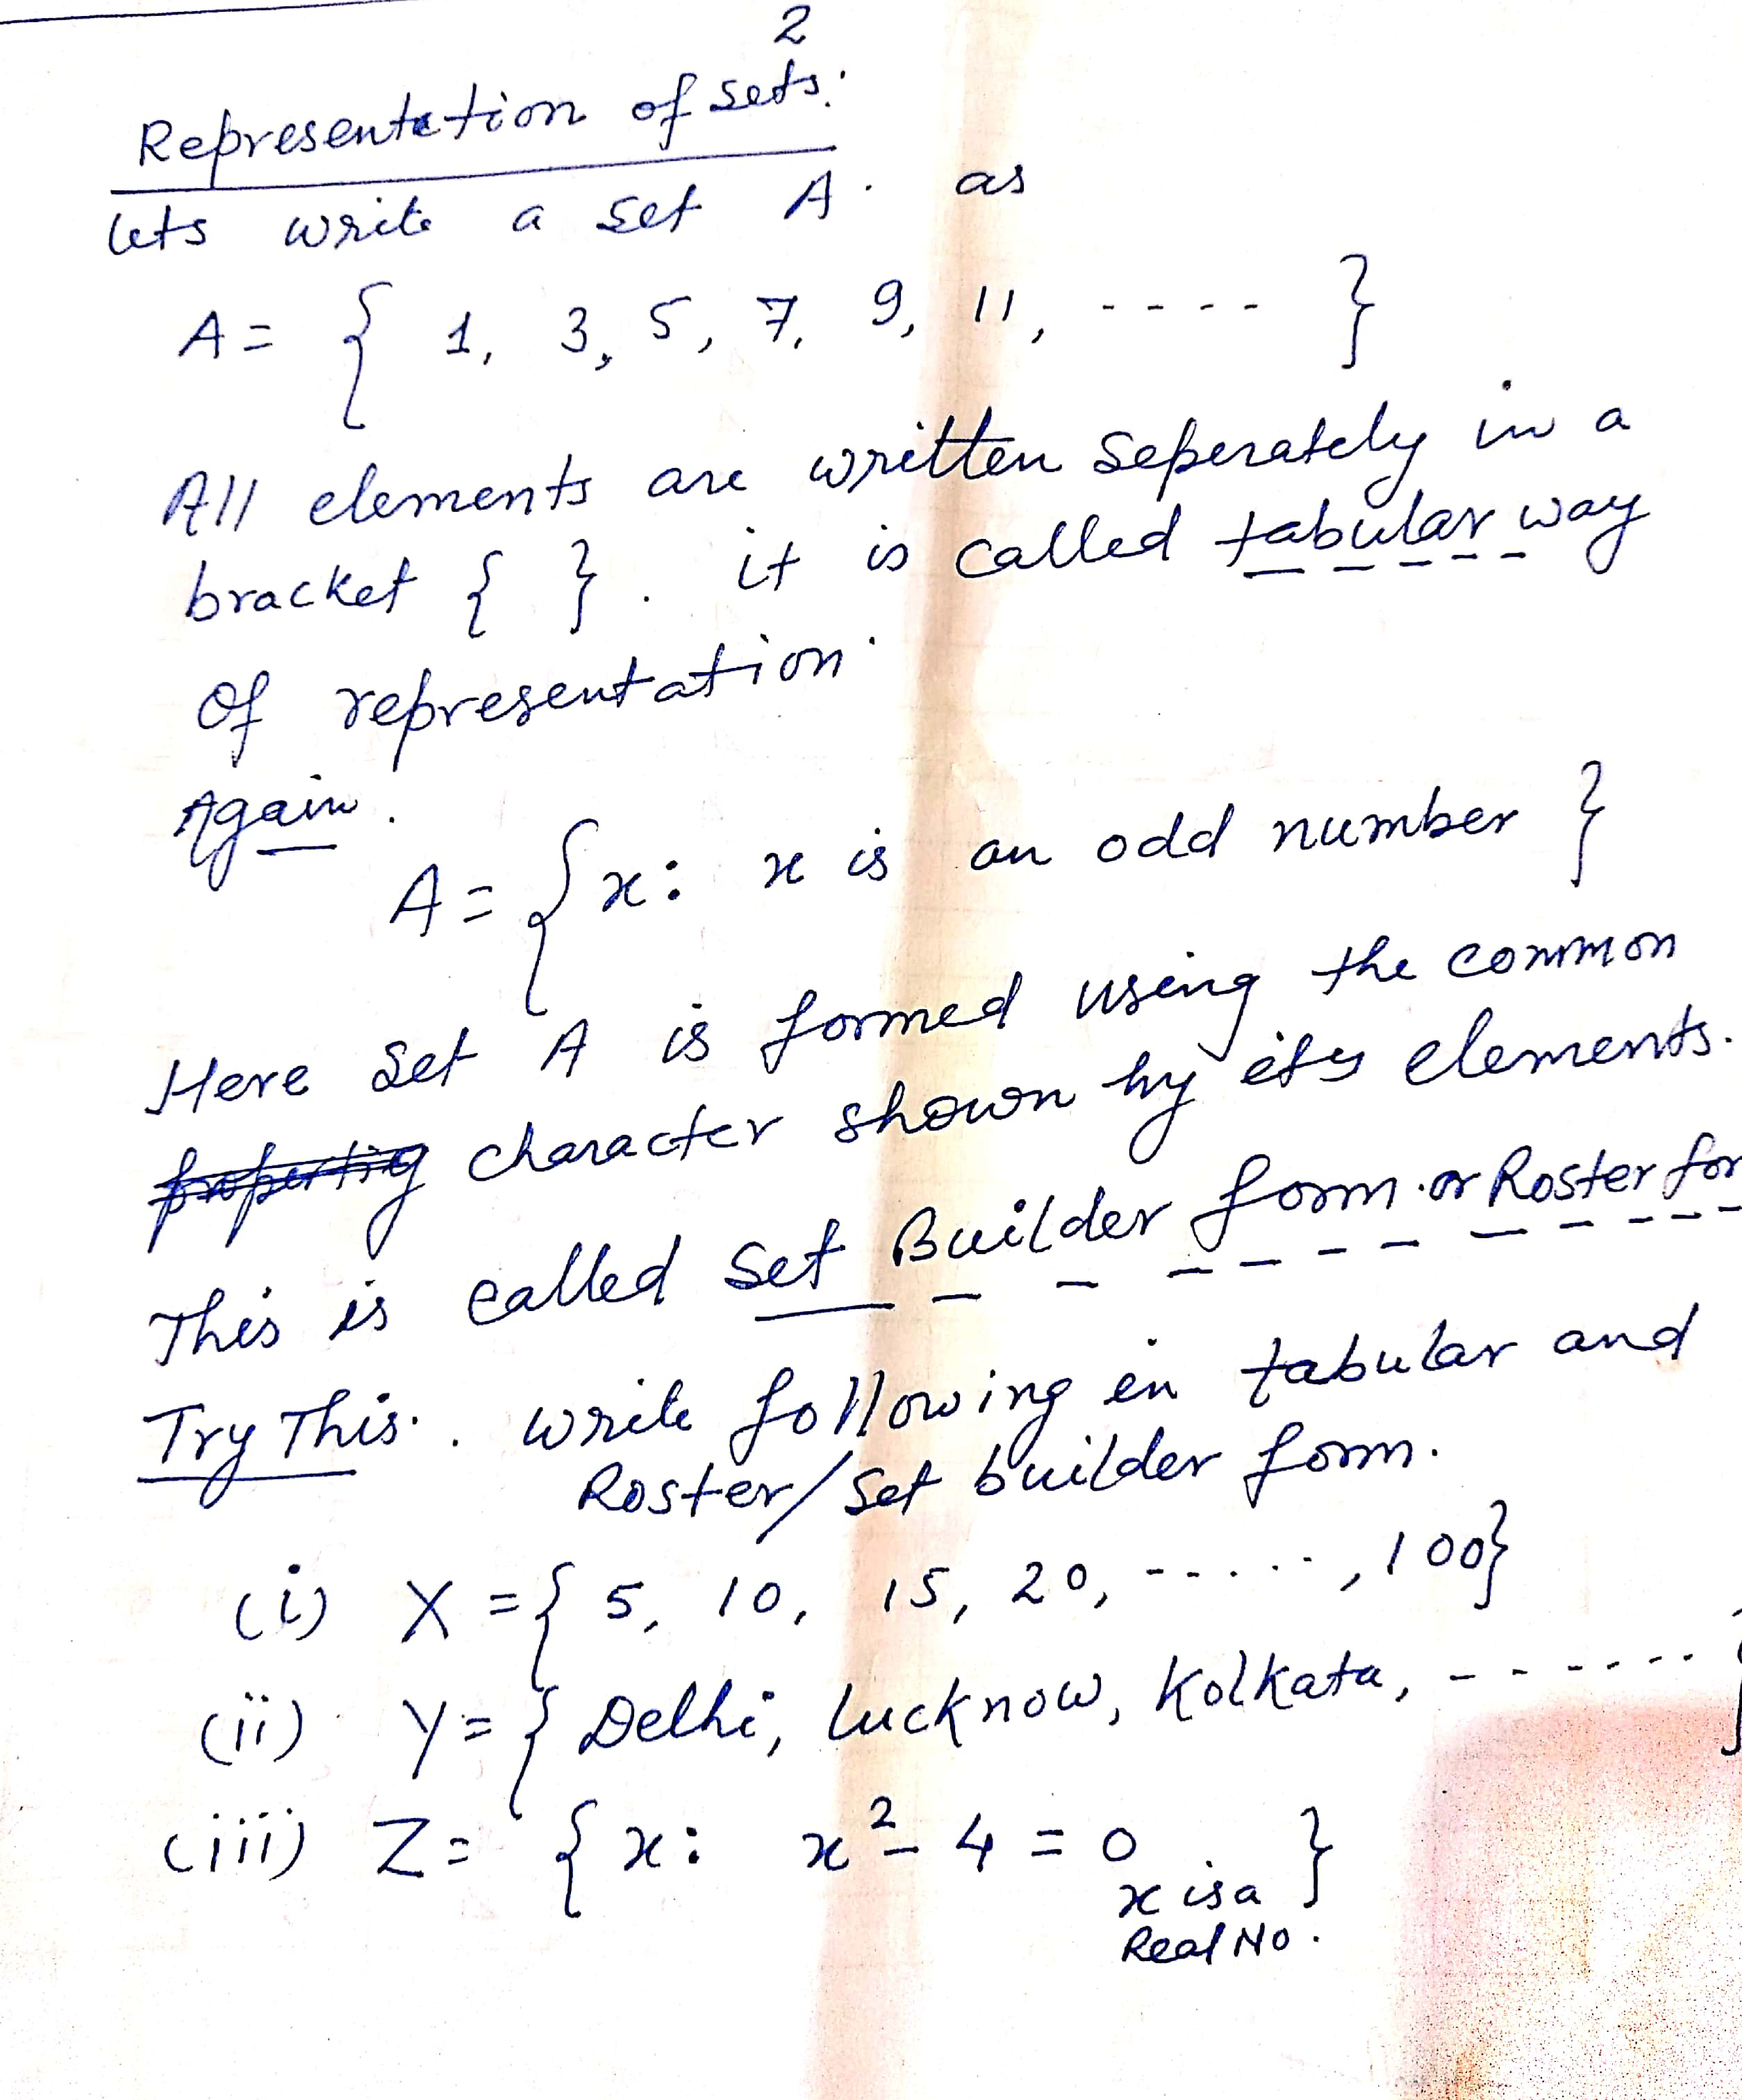 2
Representation of sets:
lets write a set A. as
A = { 1, 3, 5, 7, 9, 11, ---- }
All elements are written seperately in a
bracket { }. it is called tabular way
of representation.
Again.
A = { x: x is an odd number }
Here set A is formed using the common
character shown by its elements.
This is called Set Builder form or Roster for
Try This. write following in tabular and
Roster/Set builder form.
(i) X = { 5, 10, 15, 20, ------, 100}
(ii) Y = { Delhi, Lucknow, Kolkata, ------- }
(iii) Z = { x: x² - 4 = 0 }
x is a
Real No.